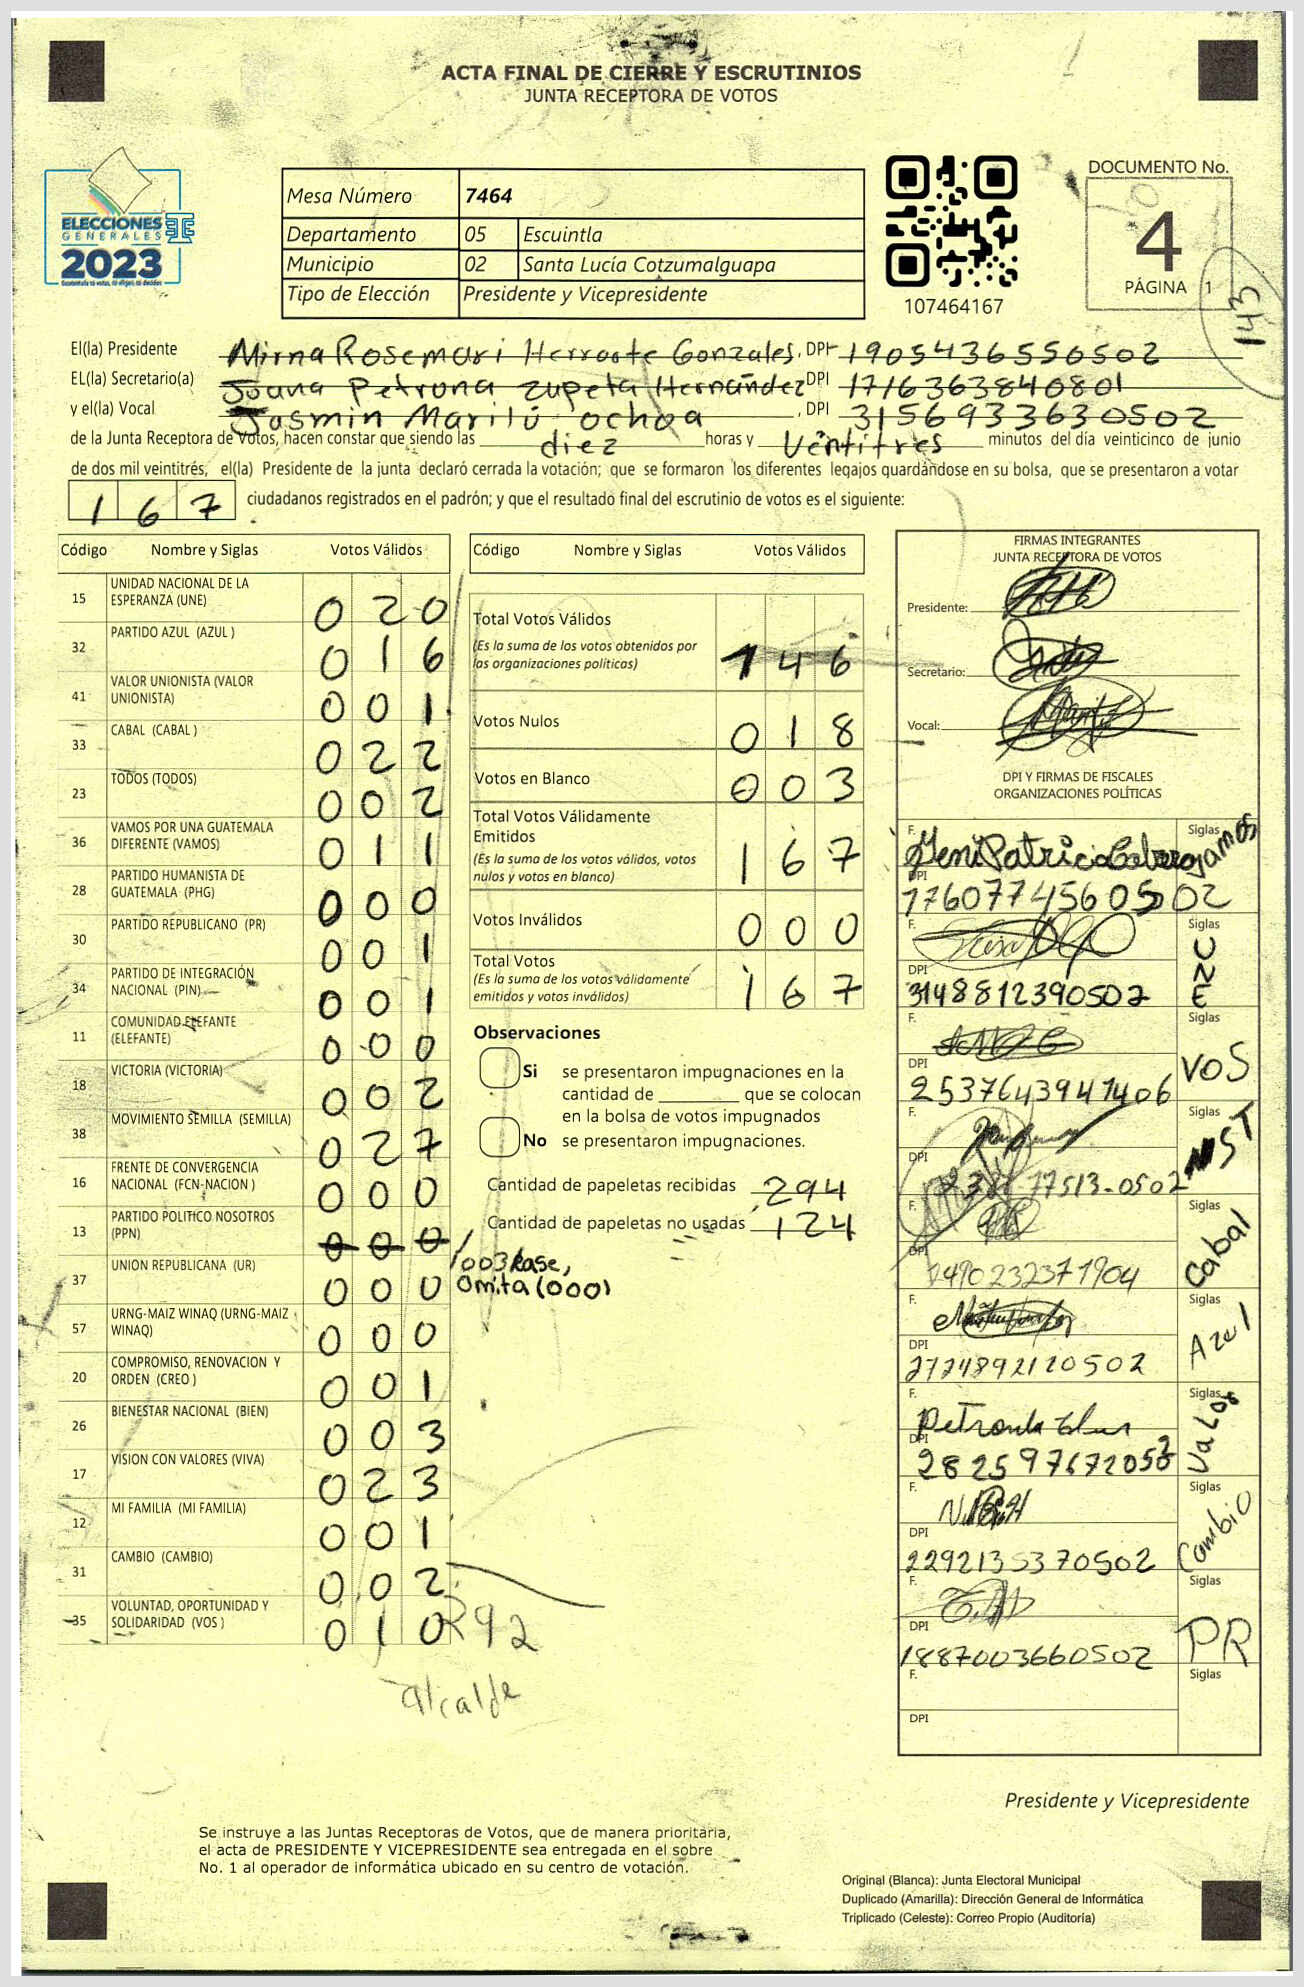 ACTA FINAL DE CIERRE Y ESCRUTINIOS
JUNTA RECEPTORA DE VOTOS
ELECCIONES
GENERALES
2023
Mesa Número 7464
Departamento 05 Escuintla
Municipio 02 Santa Lucía Cotzumalguapa
Tipo de Elección Presidente y Vicepresidente
107464167
DOCUMENTO No.
4
PÁGINA 1
143
El(la) Presidente Mirna Rosemari Herrarte Gonzales, DPI 1905436550502
EL(la) Secretario(a) Joana Petrona Zupeta Hernández DPI 1716363840801
y el(la) Vocal Jasmin Marilú Ochoa, DPI 3156933630502
de la Junta Receptora de Votos, hacen constar que siendo las diez horas y Ventitres minutos del día veinticinco de junio
de dos mil veintitrés, el(la) Presidente de la junta declaró cerrada la votación; que se formaron los diferentes legajos guardándose en su bolsa, que se presentaron a votar
167 ciudadanos registrados en el padrón; y que el resultado final del escrutinio de votos es el siguiente:
Código Nombre y Siglas Votos Válidos
15 UNIDAD NACIONAL DE LA ESPERANZA (UNE) 020
32 PARTIDO AZUL (AZUL ) 016
41 VALOR UNIONISTA (VALOR UNIONISTA) 001
33 CABAL (CABAL ) 022
23 TODOS (TODOS) 002
36 VAMOS POR UNA GUATEMALA DIFERENTE (VAMOS) 011
28 PARTIDO HUMANISTA DE GUATEMALA (PHG) 000
30 PARTIDO REPUBLICANO (PR) 001
34 PARTIDO DE INTEGRACIÓN NACIONAL (PIN) 001
11 COMUNIDAD ELEFANTE (ELEFANTE) 000
18 VICTORIA (VICTORIA) 002
38 MOVIMIENTO SEMILLA (SEMILLA) 027
16 FRENTE DE CONVERGENCIA NACIONAL (FCN-NACION ) 000
13 PARTIDO POLITICO NOSOTROS (PPN) 000
37 UNION REPUBLICANA (UR) 000
57 URNG-MAIZ WINAQ (URNG-MAIZ WINAQ) 000
20 COMPROMISO, RENOVACION Y ORDEN (CREO ) 001
26 BIENESTAR NACIONAL (BIEN) 003
17 VISION CON VALORES (VIVA) 023
12 MI FAMILIA (MI FAMILIA) 001
31 CAMBIO (CAMBIO) 002
35 VOLUNTAD, OPORTUNIDAD Y SOLIDARIDAD (VOS ) 010
292
Alcalde
Código Nombre y Siglas Votos Válidos
Total Votos Válidos 146
(Es la suma de los votos obtenidos por
las organizaciones políticas)
Votos Nulos 018
Votos en Blanco 003
Total Votos Válidamente
Emitidos 167
(Es la suma de los votos válidos, votos
nulos y votos en blanco)
Votos Inválidos 000
Total Votos 167
(Es la suma de los votos válidamente
emitidos y votos inválidos)
Observaciones
Si se presentaron impugnaciones en la
cantidad de ________ que se colocan
en la bolsa de votos impugnados
No se presentaron impugnaciones.
Cantidad de papeletas recibidas 294
Cantidad de papeletas no usadas 124
/003 kase,
Omita (000)
FIRMAS INTEGRANTES
JUNTA RECEPTORA DE VOTOS
Presidente:
Secretario:
Vocal:
DPI Y FIRMAS DE FISCALES
ORGANIZACIONES POLÍTICAS
F. Siglas
DPI 1760774560502
F. Siglas
DPI 3148812390502
F. Siglas VOS
DPI 2537643941406
F. Siglas
DPI
F. Siglas Cabal
DPI
F. Siglas Azul
DPI 2724892120502
F. Petrona Siglas Valor
DPI
F. Siglas Cambio
DPI 2292135370502
F. Siglas PR
DPI 1887003660502
F. Siglas
DPI
Presidente y Vicepresidente
Se instruye a las Juntas Receptoras de Votos, que de manera prioritaria,
el acta de PRESIDENTE Y VICEPRESIDENTE sea entregada en el sobre
No. 1 al operador de informática ubicado en su centro de votación.
Original (Blanca): Junta Electoral Municipal
Duplicado (Amarilla): Dirección General de Informática
Triplicado (Celeste): Correo Propio (Auditoría)